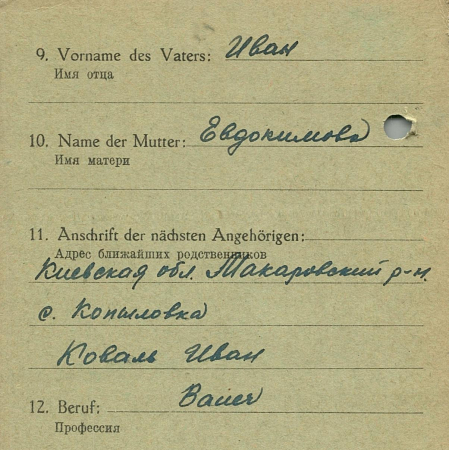 9. Vorname des Vaters: Иван
Имя отца
10. Name der Mutter: Евдокимова
Имя матери
11. Anschrift der nächsten Angehörigen:
Адрес ближайших родственников
Киевская обл. Макаровский р-н.
с. Копыловка
Коваль Иван
12. Beruf: Bauer
Профессия